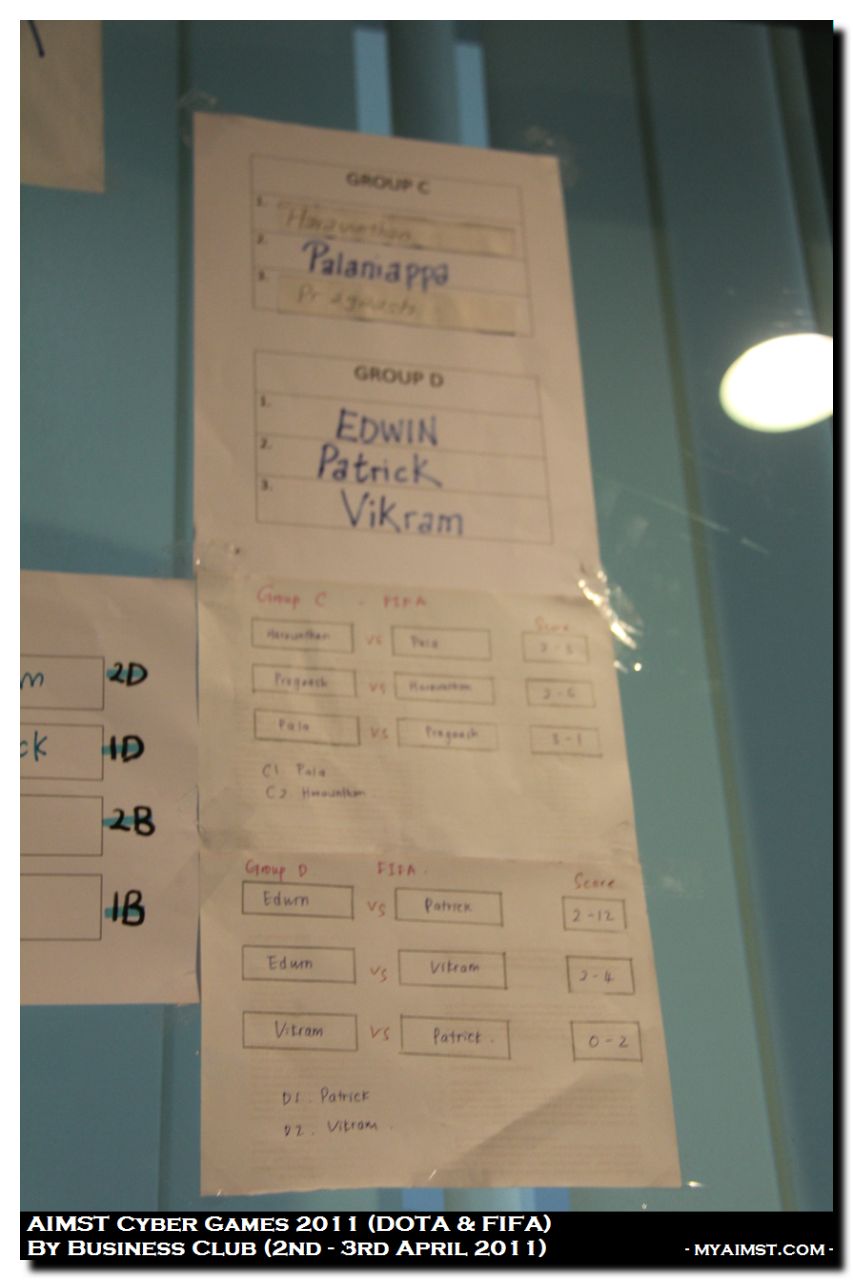 GROUP C
1.
2. Palaniappa
3.
GROUP D
1. EDWIN
2. Patrick
3. Vikram
Group C - FIFA
Score
vs Pala
vs
Pala vs 3-1
C1 Pala
C2
Group D FIFA. Score
Edwin vs Patrick 2-12
Edwin vs Vikram 2-4
Vikram vs Patrick. 0-2
D1. Patrick
D2. Vikram.
m 2D
ck 1D
2B
1B
AIMST CYBER GAMES 2011 (DOTA & FIFA)
BY BUSINESS CLUB (2ND - 3RD APRIL 2011)
- MYAIMST.COM -